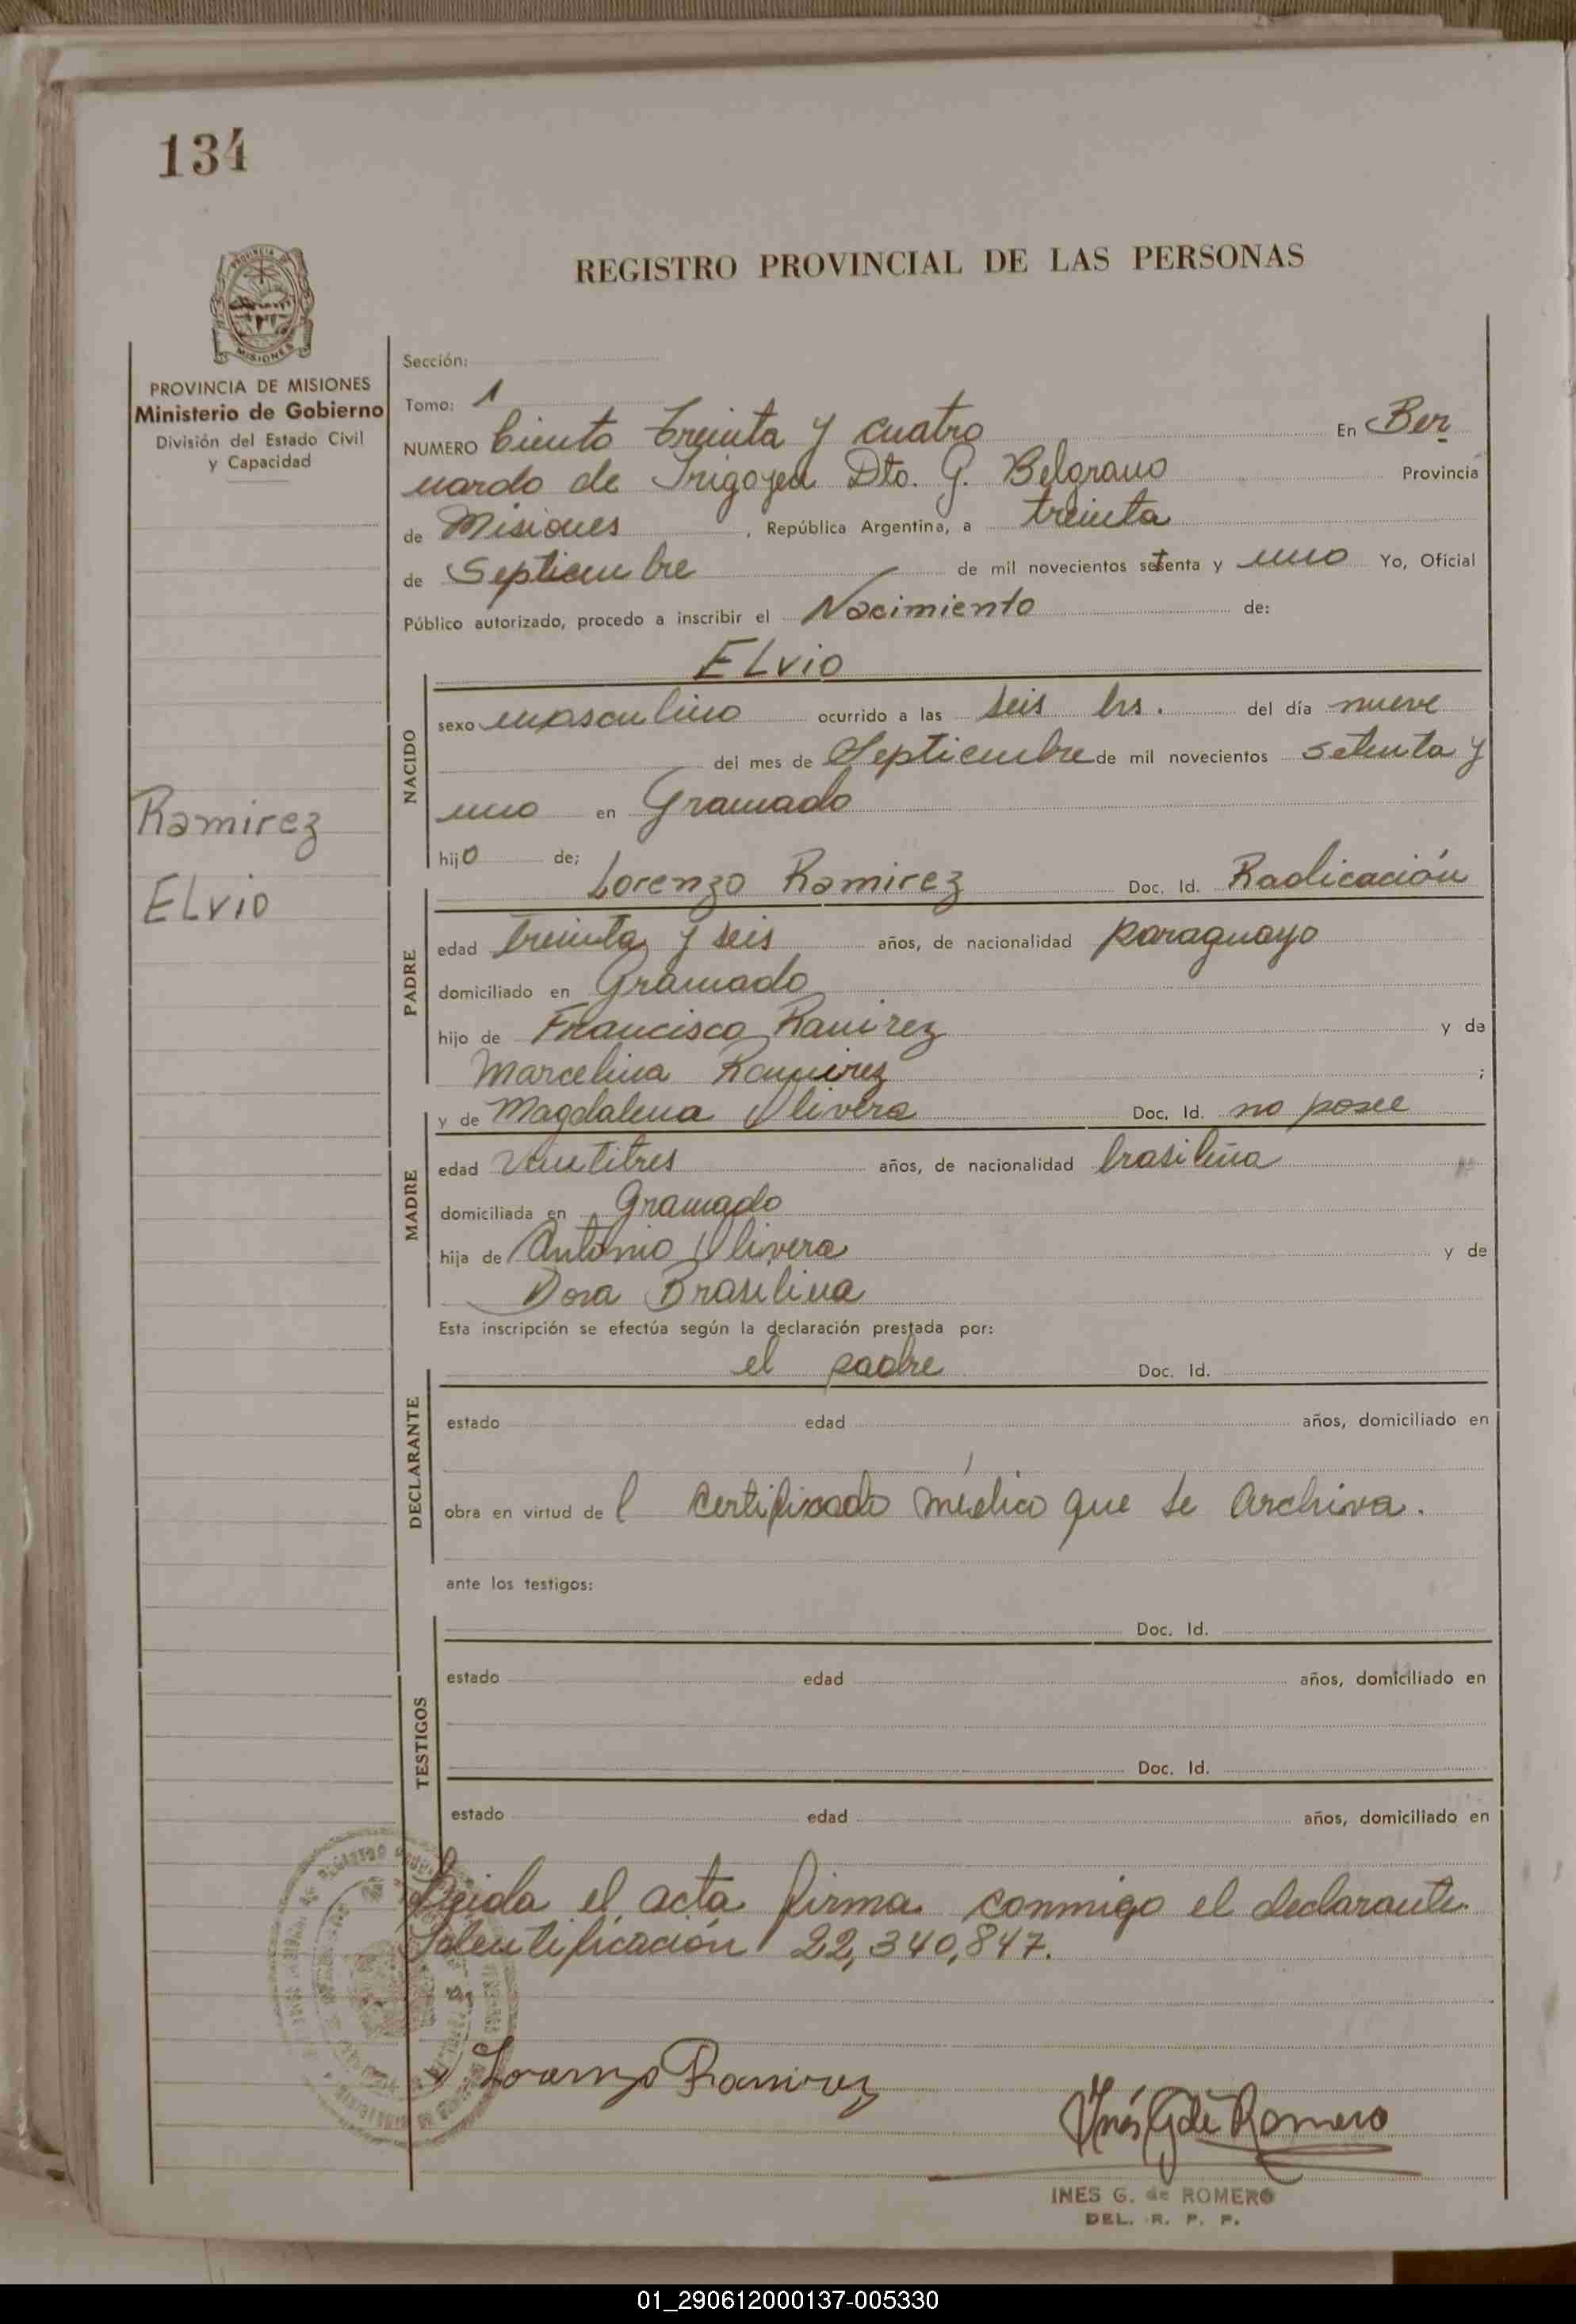 134
PROVINCIA DE
MISIONES
REGISTRO PROVINCIAL DE LAS PERSONAS
PROVINCIA DE MISIONES
Ministerio de Gobierno
División del Estado Civil
y Capacidad
Ramirez
ELvio
Sección:
Tomo: 1
NUMERO Ciento treinta y cuatro En Ber
nardo de Irigoyen Dto. G. Belgrano Provincia
de Misiones, República Argentina, a treinta
de Septiembre de mil novecientos setenta y uno Yo, Oficial
Público autorizado, procedo a inscribir el Nacimiento de:
ELvio
NACIDO
sexo masculino ocurrido a las seis hs. del día nueve
del mes de Septiembre de mil novecientos setenta y
uno en Gramado
hijo de;
Lorenzo Ramirez Doc. Id. Radicación
PADRE
edad treinta y seis años, de nacionalidad paraguayo
domiciliado en Gramado
hijo de Francisco Ramirez y de
Marcelina Ramirez ;
y de Magdalena Olivera Doc. Id. no posee
MADRE
edad veintitres años, de nacionalidad brasileña
domiciliada en Gramado
hija de Antonio Olivera y de
Dora Brasilina
Esta inscripción se efectúa según la declaración prestada por:
el padre Doc. Id.
DECLARANTE
estado edad años, domiciliado en
obra en virtud del certificado médico que se archiva.
ante los testigos:
Doc. Id.
TESTIGOS
estado edad años, domiciliado en
Doc. Id.
estado edad años, domiciliado en
Leida el acta firma conmigo el declarante.
Identificación 22,340,847.
Lorenzo Ramirez
Inés G de Romero
INES G. de ROMERO
DEL. R. P. P.
01_290612000137-005330